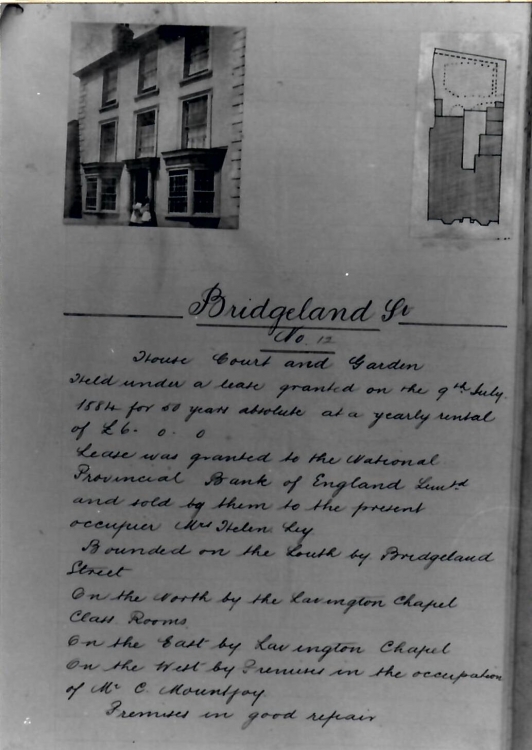 Bridgeland St
No. 12
House Court and Garden
Held under a lease granted on the 9th July
1884 for 50 years absolute at a yearly rental
of £6. 0. 0
Lease was granted to the National
Provincial Bank of England Limtd
and sold by them to the present
occupier Mrs Helen Ley
Bounded on the South by Bridgeland
Street
On the North by the Lavington Chapel
Class Rooms
On the East by Lavington Chapel
On the West by Premises in the occupation
of Mr C. Mountjoy
Premises in good repair